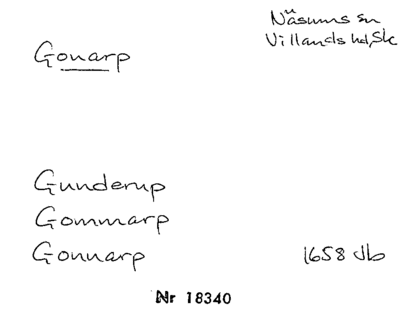 Näsums sn
Villands hd, Sk
Gonarp
Gunderup
Gommarp
Gonnarp 1658 Jb
Nr 18340